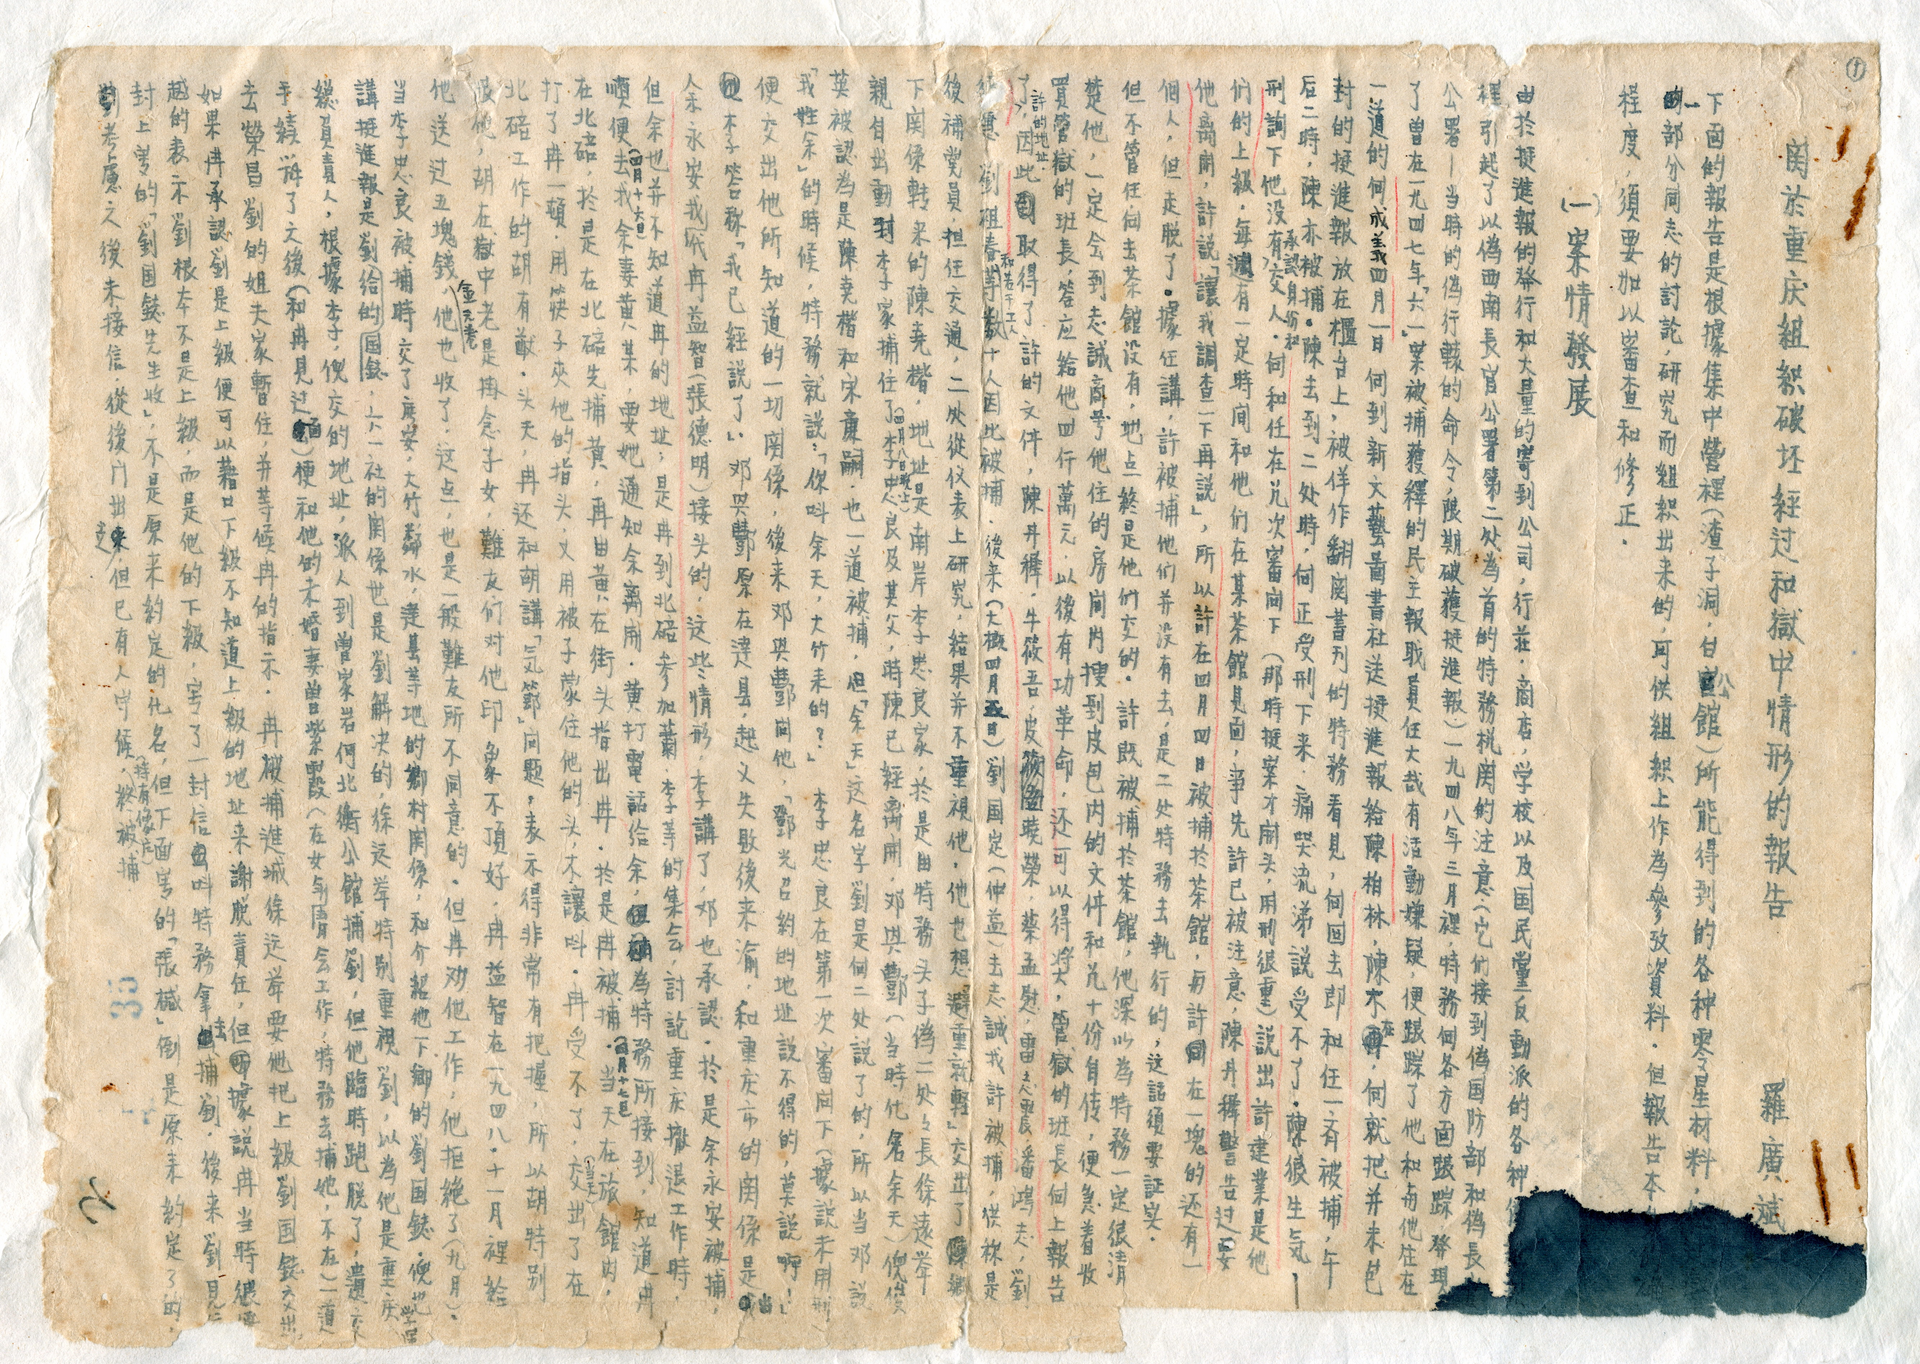 ①
関於重庆組织破坯経过和獄中情形的報告
羅廣斌
下面的報告是根據集中營裡(渣子洞,白公館)所能得到的各种零星材料,
一部分同志的討論,研究而組织出来的,可供組织上作為參攷資料.但報告本
程度,須要加以審查和修正.
(一)案情發展
由於挺進報的発行和大量的寄到公司,行莊,商店,学校以及国民黨反動派的各种
裡,引起了以偽西南長官公署第二处為首的特務机関的注意(它们接到偽国防部和偽長
公署—当時的偽行轅的命令,限期破獲挺進報)一九四八年三月裡,特務何各方面跟踪,発現
了曾在一九四七年「六一」案被捕獲釋的民主報职員任大哉有活動嫌疑,便跟踪了他和与他住在
一道的何成義四月一日何到新文藝圖書社送挺進報給陳柏林,陳不在,何就把并来包
封的挺進報放在櫃台上,被佯作翻閱書刊的特務看見,何回去即和任一斉被捕,午
后二時,陳亦被捕.陳去到二处時,何正受刑下来.痛哭流涕説受不了.陳很生气
刑詢下他没有承認身份和交人.何和任在幾次審向下(那時挺案才開头,用刑很重)説出許建業是他
们的上級,每週有一定時间和他们在某茶館見面,事先許已被注意,陳丹犀警告过要
他离開,許説「讓我調查一下再説」,所以許在四月四日被捕於茶館,与許同在一塊的还有一
個人,但走脱了.據任講,許被捕他们并没有去,是二处特務去執行的,这話須要証实.
但不管任何去茶館没有,地点終是他们交的.許既被捕於茶館,他深以為特務一定很清
楚他,一定会到志誠商号他住的房间内搜到皮包内的文件和幾十份自传,便急着收
買管獄的班長,答应給他四仟萬元,以後有功革命,还可以得獎大,管獄的班長向上報告
了許的地址,因此取得了許的文件,陳丹犀,牛筱吾,皮曉榮,蔡孟慰,雷志震,潘鴻志,劉
劉祖春和若干工人等數十人因此被捕.後来(大概四月五日)劉国定(仲益)去志誠找許被捕,供称是
後補党員,担任交通,二处從仪表上研究,結果并不重視他,他也想「避重就輕」交出了
下関係轉来的陳堯楷,地址是南岸李忠良家,於是由特務头子偽二处处長徐遠举
親自出動到李家捕住了(四月八日晚上)李忠良及其父,時陳已經离開,邓興酆(当時化名余天)倪俊
英被認為是陳堯楷和宋廉嗣.也一道被捕,但「余天」这名字劉是向二处説了的,所以当邓説
「我姓余」的時候,特務就説:「你叫余天,大竹来的?」李忠良在第一次審向下(據説未用刑)
便交出他所知道的一切関係,後来邓興酆向他,「鄧光召約的地址説不得的,莫説啊!」
李答称「我已經説了」.邓興酆原在達县,起义失敗後来渝,和重庆市的関係是由
余永安找冉益智(張德明)接头的,这些情形,李講了,邓也承認.於是余永安被捕,
但余也并不知道冉的地址,是冉到北碚参加蕭,李等的集会,討論重庆撤退工作時,
順便去找余妻黄某,要她通知余离開.黄打電話給余,為特務所接到,知道冉
在北碚,於是(四月十六日)在北碚先捕黄,再由黄在街头指出冉.於是冉被捕.(四月十七日)当天在旅館内,
打了冉一頓,用筷子夾他的指头,又用被子蒙住他的头,不讓叫.冉受不了,交出了在
北碚工作的胡有猷.头天,冉还和胡講「気節」向題,表示得非常有把握,所以胡特别
恨他,胡在獄中老是掛念子女,難友们对他印象不頂好.冉益智在一九四八.十一月裡給
他送过五塊錢(金元卷),他也收了.这点,也是一般難友所不同意的.但冉劝他工作,他拒絶了(九月).
当李忠良被捕時交了庆安,大竹鄰水,達县等地的鄉村関係,和介紹他下鄉的劉国鋕.倪也
講挺進報是劉給的,六一社的関係也是劉解决的,徐远举特别重視劉,以為他是重庆学運
總負責人,根據李子,倪交的地址,派人到曾家岩何北衡公館捕劉,但他臨時跑脱了,遺交
手續辦了之後(和冉見过面)便和他的未婚妻曾紫霞(在女青年会工作,特務去捕她,不在)一道
去榮昌劉的姐夫家暫住,并等候冉的指示.冉被捕進城徐远举要他把上級劉国鋕交出,
如果冉承認劉是上級便可以藉口下級不知道上級的地址来謝脱責任,但據説冉当時很
越的表示劉根本不是上級,而是他的下級,寫了一封信叫特務拿去捕劉.後来劉見
封上寫的「劉国鋕先生收」,不是原来約定的化名,但下面寫的「張樾」倒是原来約定了的,
考慮之後未接信,從後门出走,但已有人守候(特有佈店),終被捕
35